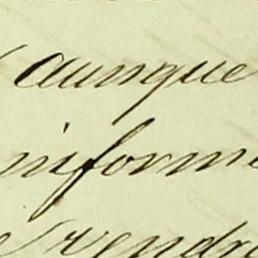 aunque
niforme
vendr